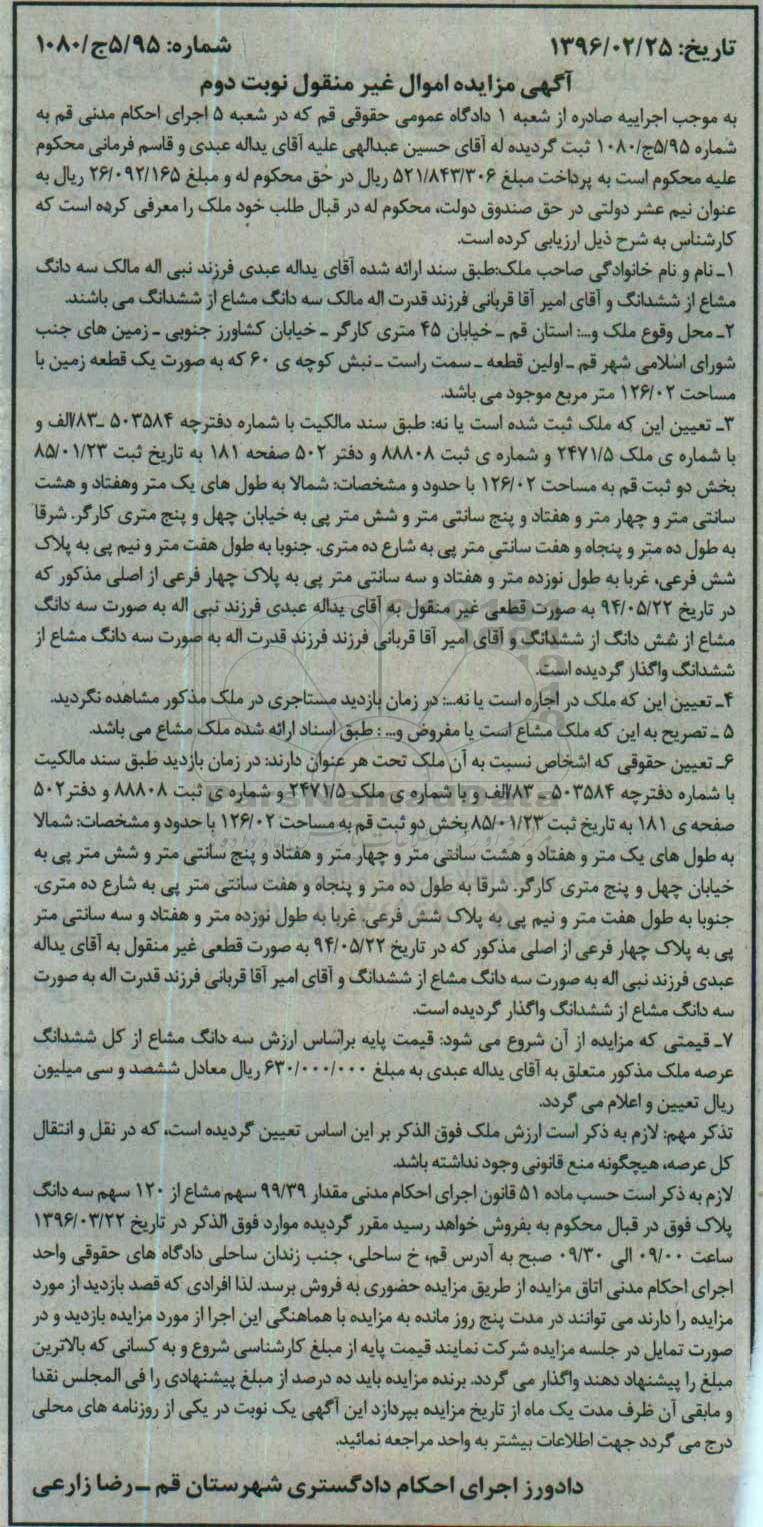 تاریخ: ۱۳۹۶/۰۲/۲۵
شماره: ۵/۹۵ج/۱۰۸۰
آگهی مزایده اموال غیر منقول نوبت دوم
به موجب اجراییه صادره از شعبه ۱ دادگاه عمومی حقوقی قم که در شعبه ۵ اجرای احکام مدنی قم به
شماره ۵/۹۵ج/۱۰۸۰ ثبت گردیده له آقای حسین عبدالهی علیه آقای یداله عبدی و قاسم فرمانی محکوم
علیه محکوم است به پرداخت مبلغ ۵۲۱/۸۴۳/۳۰۶ ریال در حق محکوم له و مبلغ ۲۶/۰۹۲/۱۶۵ ریال به
عنوان نیم عشر دولتی در حق صندوق دولت، محکوم له در قبال طلب خود ملک را معرفی کرده است که
کارشناس به شرح ذیل ارزیابی کرده است.
۱ـ نام و نام خانوادگی صاحب ملک:طبق سند ارائه شده آقای یداله عبدی فرزند نبی اله مالک سه دانگ
مشاع از ششدانگ و آقای امیر آقا قربانی فرزند قدرت اله مالک سه دانگ مشاع از ششدانگ می باشند.
۲ـ محل وقوع ملک و...: استان قم ـ خیابان ۴۵ متری کارگر ـ خیابان کشاورز جنوبی ـ زمین های جنب
شورای اسلامی شهر قم ـ اولین قطعه ـ سمت راست ـ نبش کوچه ی ۶۰ که به صورت یک قطعه زمین با
مساحت ۱۲۶/۰۲ متر مربع موجود می باشد.
۳ـ تعیین این که ملک ثبت شده است یا نه: طبق سند مالکیت با شماره دفترچه ۵۰۳۵۸۴ ـ۸۳/الف و
با شماره ی ملک ۲۴۷۱/۵ و شماره ی ثبت ۸۸۸۰۸ و دفتر ۵۰۲ صفحه ۱۸۱ به تاریخ ثبت ۸۵/۰۱/۲۳
بخش دو ثبت قم به مساحت ۱۲۶/۰۲ با حدود و مشخصات: شمالا به طول های یک متر وهفتاد و هشت
سانتی متر و چهار متر و هفتاد و پنج سانتی متر و شش متر پی به خیابان چهل و پنج متری کارگر. شرقا
به طول ده متر و پنجاه و هفت سانتی متر پی به شارع ده متری. جنوبا به طول هفت متر و نیم پی به پلاک
شش فرعی، غربا به طول نوزده متر و هفتاد و سه سانتی متر پی به پلاک چهار فرعی از اصلی مذکور که
در تاریخ ۹۴/۰۵/۲۲ به صورت قطعی غیر منقول به آقای یداله عبدی فرزند نبی اله به صورت سه دانگ
مشاع از شش دانگ از ششدانگ و آقای امیر آقا قربانی فرزند فرزند قدرت اله به صورت سه دانگ مشاع از
ششدانگ واگذار گردیده است.
۴ـ تعیین این که ملک در اجاره است یا نه...: در زمان بازدید مستاجری در ملک مذکور مشاهده نگردید.
۵ ـ تصریح به این که ملک مشاع است یا مفروض و... : طبق اسناد ارائه شده ملک مشاع می باشد.
۶ـ تعیین حقوقی که اشخاص نسبت به آن ملک تحت هر عنوان دارند: در زمان بازدید طبق سند مالکیت
با شماره دفترچه ۵۰۳۵۸۴ ـ ۸۳/الف و با شماره ی ملک ۲۴۷۱/۵ و شماره ی ثبت ۸۸۸۰۸ و دفتر۵۰۲
صفحه ی ۱۸۱ به تاریخ ثبت ۸۵/۰۱/۲۳ بخش دو ثبت قم به مساحت ۱۲۶/۰۲ با حدود و مشخصات: شمالا
به طول های یک متر و هفتاد و هشت سانتی متر و چهار متر و هفتاد و پنج سانتی متر و شش متر پی به
خیابان چهل و پنج متری کارگر. شرقا به طول ده متر و پنجاه و هفت سانتی متر پی به شارع ده متری.
جنوبا به طول هفت متر و نیم پی به پلاک شش فرعی. غربا به طول نوزده متر و هفتاد و سه سانتی متر
پی به پلاک چهار فرعی از اصلی مذکور که در تاریخ ۹۴/۰۵/۲۲ به صورت قطعی غیر منقول به آقای یداله
عبدی فرزند نبی اله به صورت سه دانگ مشاع از ششدانگ و آقای امیر آقا قربانی فرزند قدرت اله به صورت
سه دانگ مشاع از ششدانگ واگذار گردیده است.
۷ـ قیمتی که مزایده از آن شروع می شود: قیمت پایه براساس ارزش سه دانگ مشاع از کل ششدانگ
عرصه ملک مذکور متعلق به آقای یداله عبدی به مبلغ ۶۳۰/۰۰۰/۰۰۰ ریال معادل ششصد و سی میلیون
ریال تعیین و اعلام می گردد.
تذکر مهم: لازم به ذکر است ارزش ملک فوق الذکر بر این اساس تعیین گردیده است، که در نقل و انتقال
کل عرصه، هیچگونه منع قانونی وجود نداشته باشد.
لازم به ذکر است حسب ماده ۵۱ قانون اجرای احکام مدنی مقدار ۹۹/۳۹ سهم مشاع از ۱۲۰ سهم سه دانگ
پلاک فوق در قبال محکوم به بفروش خواهد رسید مقرر گردیده موارد فوق الذکر در تاریخ ۱۳۹۶/۰۳/۲۲
ساعت ۰۹/۰۰ الی ۰۹/۳۰ صبح به آدرس قم، خ ساحلی، جنب زندان ساحلی دادگاه های حقوقی واحد
اجرای احکام مدنی اتاق مزایده از طریق مزایده حضوری به فروش برسد. لذا افرادی که قصد بازدید از مورد
مزایده را دارند می توانند در مدت پنج روز مانده به مزایده با هماهنگی این اجرا از مورد مزایده بازدید و در
صورت تمایل در جلسه مزایده شرکت نمایند قیمت پایه از مبلغ کارشناسی شروع و به کسانی که بالاترین
مبلغ را پیشنهاد دهند واگذار می گردد. برنده مزایده باید ده درصد از مبلغ پیشنهادی را فی المجلس نقدا
و مابقی آن ظرف مدت یک ماه از تاریخ مزایده بپردازد این آگهی یک نوبت در یکی از روزنامه های محلی
درج می گردد جهت اطلاعات بیشتر به واحد مراجعه نمائید.
دادورز اجرای احکام دادگستری شهرستان قم ـ رضا زارعی